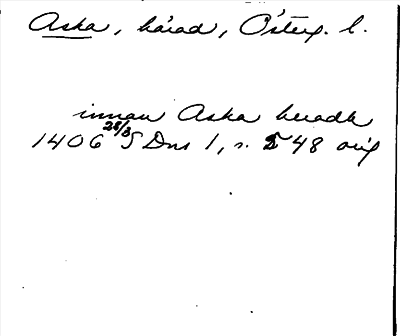 Aska, härad, Österg. l.
innan Aska heradh
1406 28/3 SDns 1, s. 548 orig